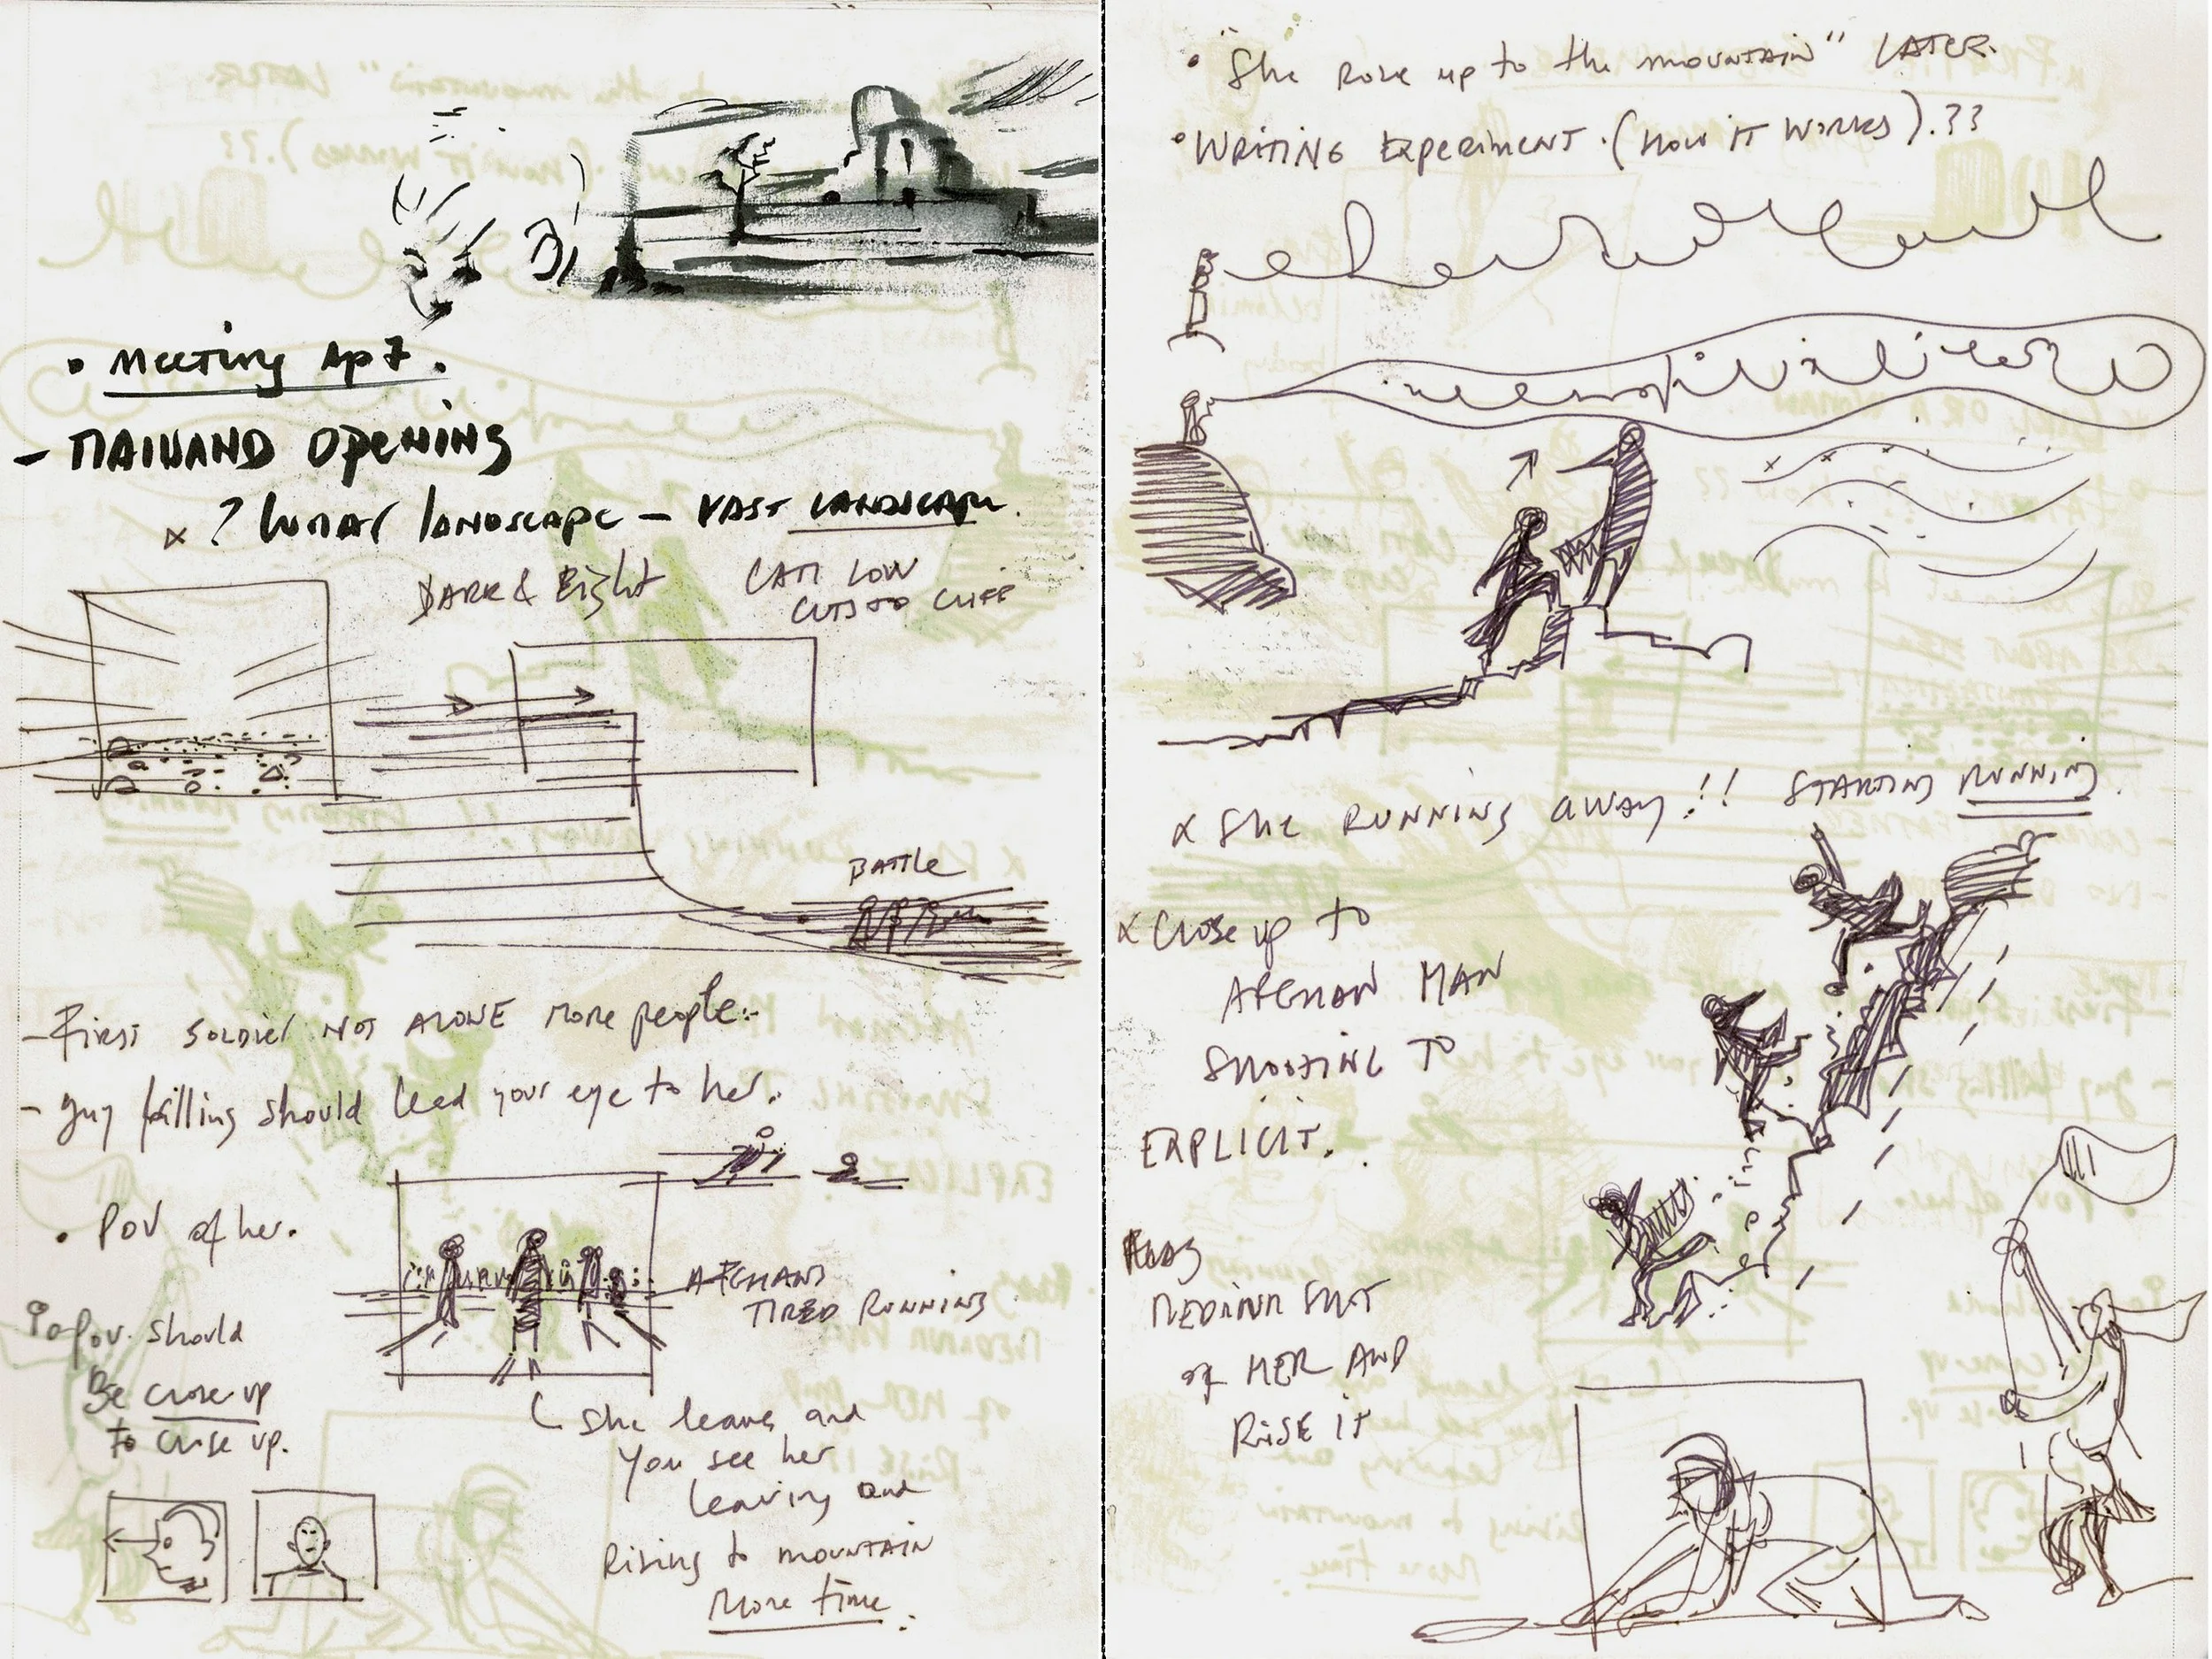 • Meeting Ap 7.
- MAIWAND OPENING
x ? lunar landscape - VAST LANDSCAPE.
DARK & Bight
CAM LOW
CUTS TO CLIFF
BATTLE
- First SOLDIER NOT ALONE MORE people.
- guy falling should lead your eye to her.
• POV of her.
AFGHANS
TIRED RUNNING
POV. should
Be close up
to close up.
She leaves and
You see her
leaving and
Rising to MOUNTAIN
More time.
• "She Rose up to the MOUNTAIN" LATER.
• WRITING EXPERIMENT. (HOW IT WORKS).??
x She RUNNING away!! STARTING RUNNING.
x Close up to
AFGHAN MAN
SHOOTING TO
EXPLICIT.
FLAG
MEDIUM SHOT
of HER AND
RISE IT